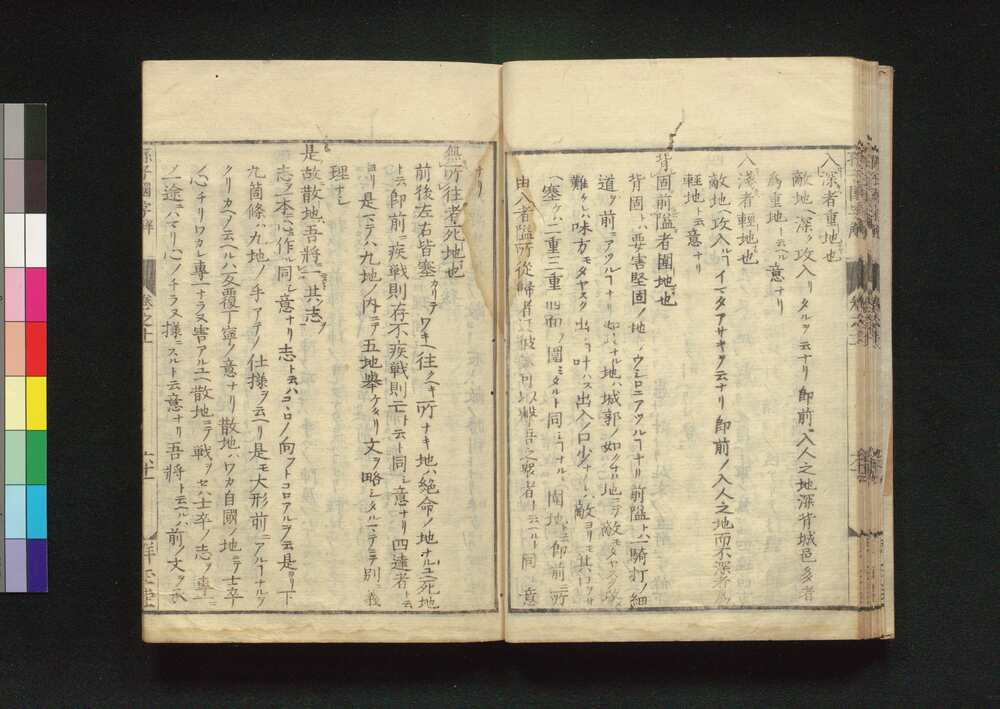 入深者重地也
敵地ヘ深ク攻入リタルヲ云ナリ即前ノ入人之地深背城邑多者
為重地ト云ヘル意ナリ
入淺者輕地也
敵地ヘ攻入ルヿイマタアサキヲ云ナリ即前ノ入人之地而不深者為
輕地ト云意ナリ
背固前隘者圍地也
背固トハ要害堅固ノ地ヲウシロニアツルヿナリ前隘トハ一騎打ノ細
道ヲ前ニアツルヿナリ如此ナル地ハ城郭ノ如クナル地ニテ敵モタヤスク攻
難ケレハ味方モタヤスク出ルヿ叶ハス出入ノ口少ナケレハ敵ヨリモ其口ヲサヘ
塞ケハ二重三重四面ヲ圍ミタルト同シヿナルユヘ圍地ト云即前ニ所
由入者隘所從歸者迂彼寡可以撃吾之衆者ト云ヘルト同シ意
ナリ
無所往者死地也
前後左右皆塞カリテワキヘ往クヘキ所ナキ地ハ絶命ノ地ナルユヘ死地
ト云即前ニ疾戰則存不疾戰則亡ト云ト同シ意ナリ四達者ト云
ヨリ是マテハ九地ノ内ニテ五地ヲ擧ケタリ文ヲ略シタルマテニテ別ノ義
理ナシ
是故散地吾將一其志
志ヲ一本ニ心ニ作ル同シ意ナリ志ト云ハコヽロノ向フトコロアルヲ云是ヨリ下
九箇條ハ九地ノ手アテノ仕様ヲ云ヘリ是モ大形前ニアルヿナルヲ
クリカヘシ云ヘルハ反覆丁寧ノ意ナリ散地ハワカ自國ノ地ニテ士卒ノ
心チリワカレ專一ナラヌ害アルユヘ散地ニテ戰ヲセハ士卒ノ志ヲ專
一途ニハマリ心ノチラヌ様ニスルト云意ナリ吾將ト云ヘルハ前ノ文ヲ承
孫子國字解
卷之十一